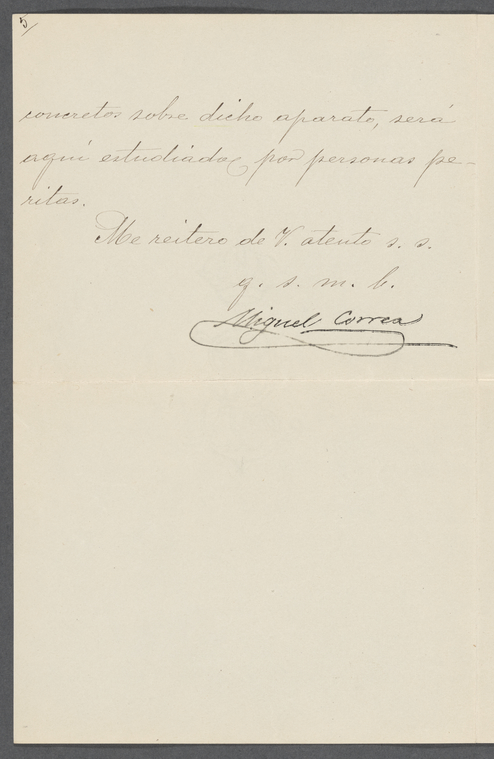 5/
concretos sobre dicho aparato, será
aquí estudiado por personas pe-
ritas.
Me reitero de V. atento s. s.
q. s. m. b.
Miguel Correa